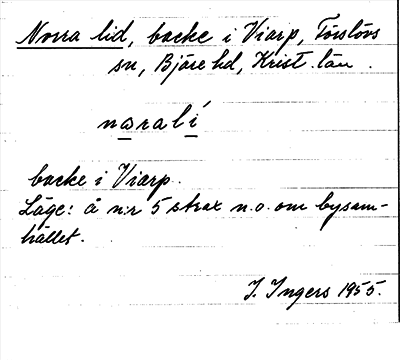 Norra lid, backe i Viarp, Förslövs
sn, Bjäre hd, Krist. län.
naralí
backe i Viarp.
Läge: å n:r 5 strax n.o. om bysam-
hället.
I. Ingers 1955.